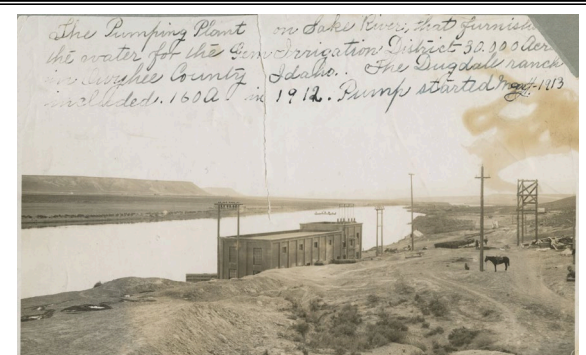 The Pumping Plant on Sake River, that furnish
the water for the Gem Irrigation District 30.000 Acr
in Owyhee County Idaho.. The Dugdale ranch
included. 160 A. in 1912. Pump started May 1913